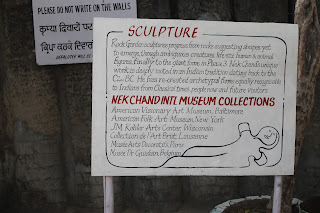 PLEASE DO NOT WRITE ON THE WALLS
कृपया दीवारों पर न लिखें
ਕ੍ਰਿਪਾ ਕਰਕੇ ਕੰਧਾਂ ਤੇ ਨਾ ਲਿਖੋ
SCULPTURE
Rock Garden sculptures progress from rocks, suggesting shapes yet
to emerge, through ambiguous creatures, life size human & animal
figures, finally to the giant forms in Phase 3. Nek Chand's unique
work is deeply rooted in an Indian tradition dating back to the
C BC. He has re-created archetypal forms equally recognisable
to Indians from Classical times, people now and future visitors
NEK CHAND INTL MUSEUM COLLECTIONS
American Visionary Art Museum, Baltimore
American Folk Art Museum, New York
JM Kohler Arts Center, Wisconsin
Collection de l'Art Brut, Lausanne
Musée Arts Decoratifs, Paris
Musée Dr Guislain, Belgium